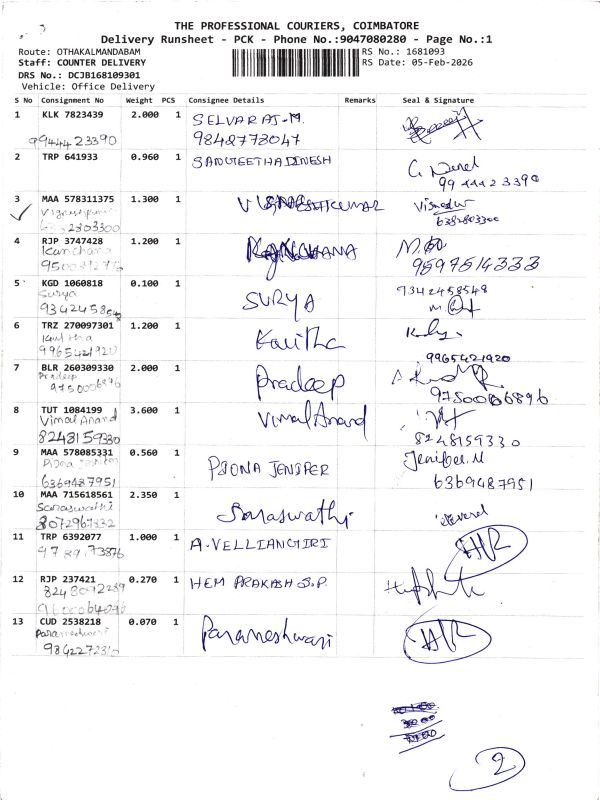 THE PROFESSIONAL COURIERS, COIMBATORE
Delivery Runsheet - PCK - Phone No.:9047080280 - Page No.:1
Route: OTHAKALMANDABAM
RS No.: 1681093
Staff: COUNTER DELIVERY
RS Date: 05-Feb-2026
DRS No.: DCJB168109301
Vehicle: Office Delivery
S No Consignment No Weight PCS Consignee Details Remarks Seal & Signature
1 KLK 7823439 2.000 1 SELVARAJ-M.
9944423390 9842773047
2 TRP 641933 0.960 1 SANGEETHA DINESH
9944423390
3 MAA 578311375 1.300 1 VIGNESHKUMAR
6382803300
4 RJP 3747428 1.200 1 KANCHANA
Kanchana 9597514333
5 KGD 1060818 0.100 1 SURYA 9342458548
Surya
9342458548
6 TRZ 270097301 1.200 1 Kavitha
Kavitha
9965421920 9965421920
7 BLR 260309330 2.000 1 Pradeep
Pradeep
9750006896 9750006896
8 TUT 1084199 3.600 1 Vimal Anand
Vimal Anand
8248159330 8248159330
9 MAA 578085331 0.560 1 PJONA JENIFER Jenifer.M
6369487951 6369487951
10 MAA 715618561 2.350 1 Saraswathi
Saraswathi
8072967332
11 TRP 6392077 1.000 1 A.VELLIANGIRI
12 RJP 237421 0.270 1 HEM PRAKASH S.P.
13 CUD 2538218 0.070 1 Parameshwari
Parameshwari
2